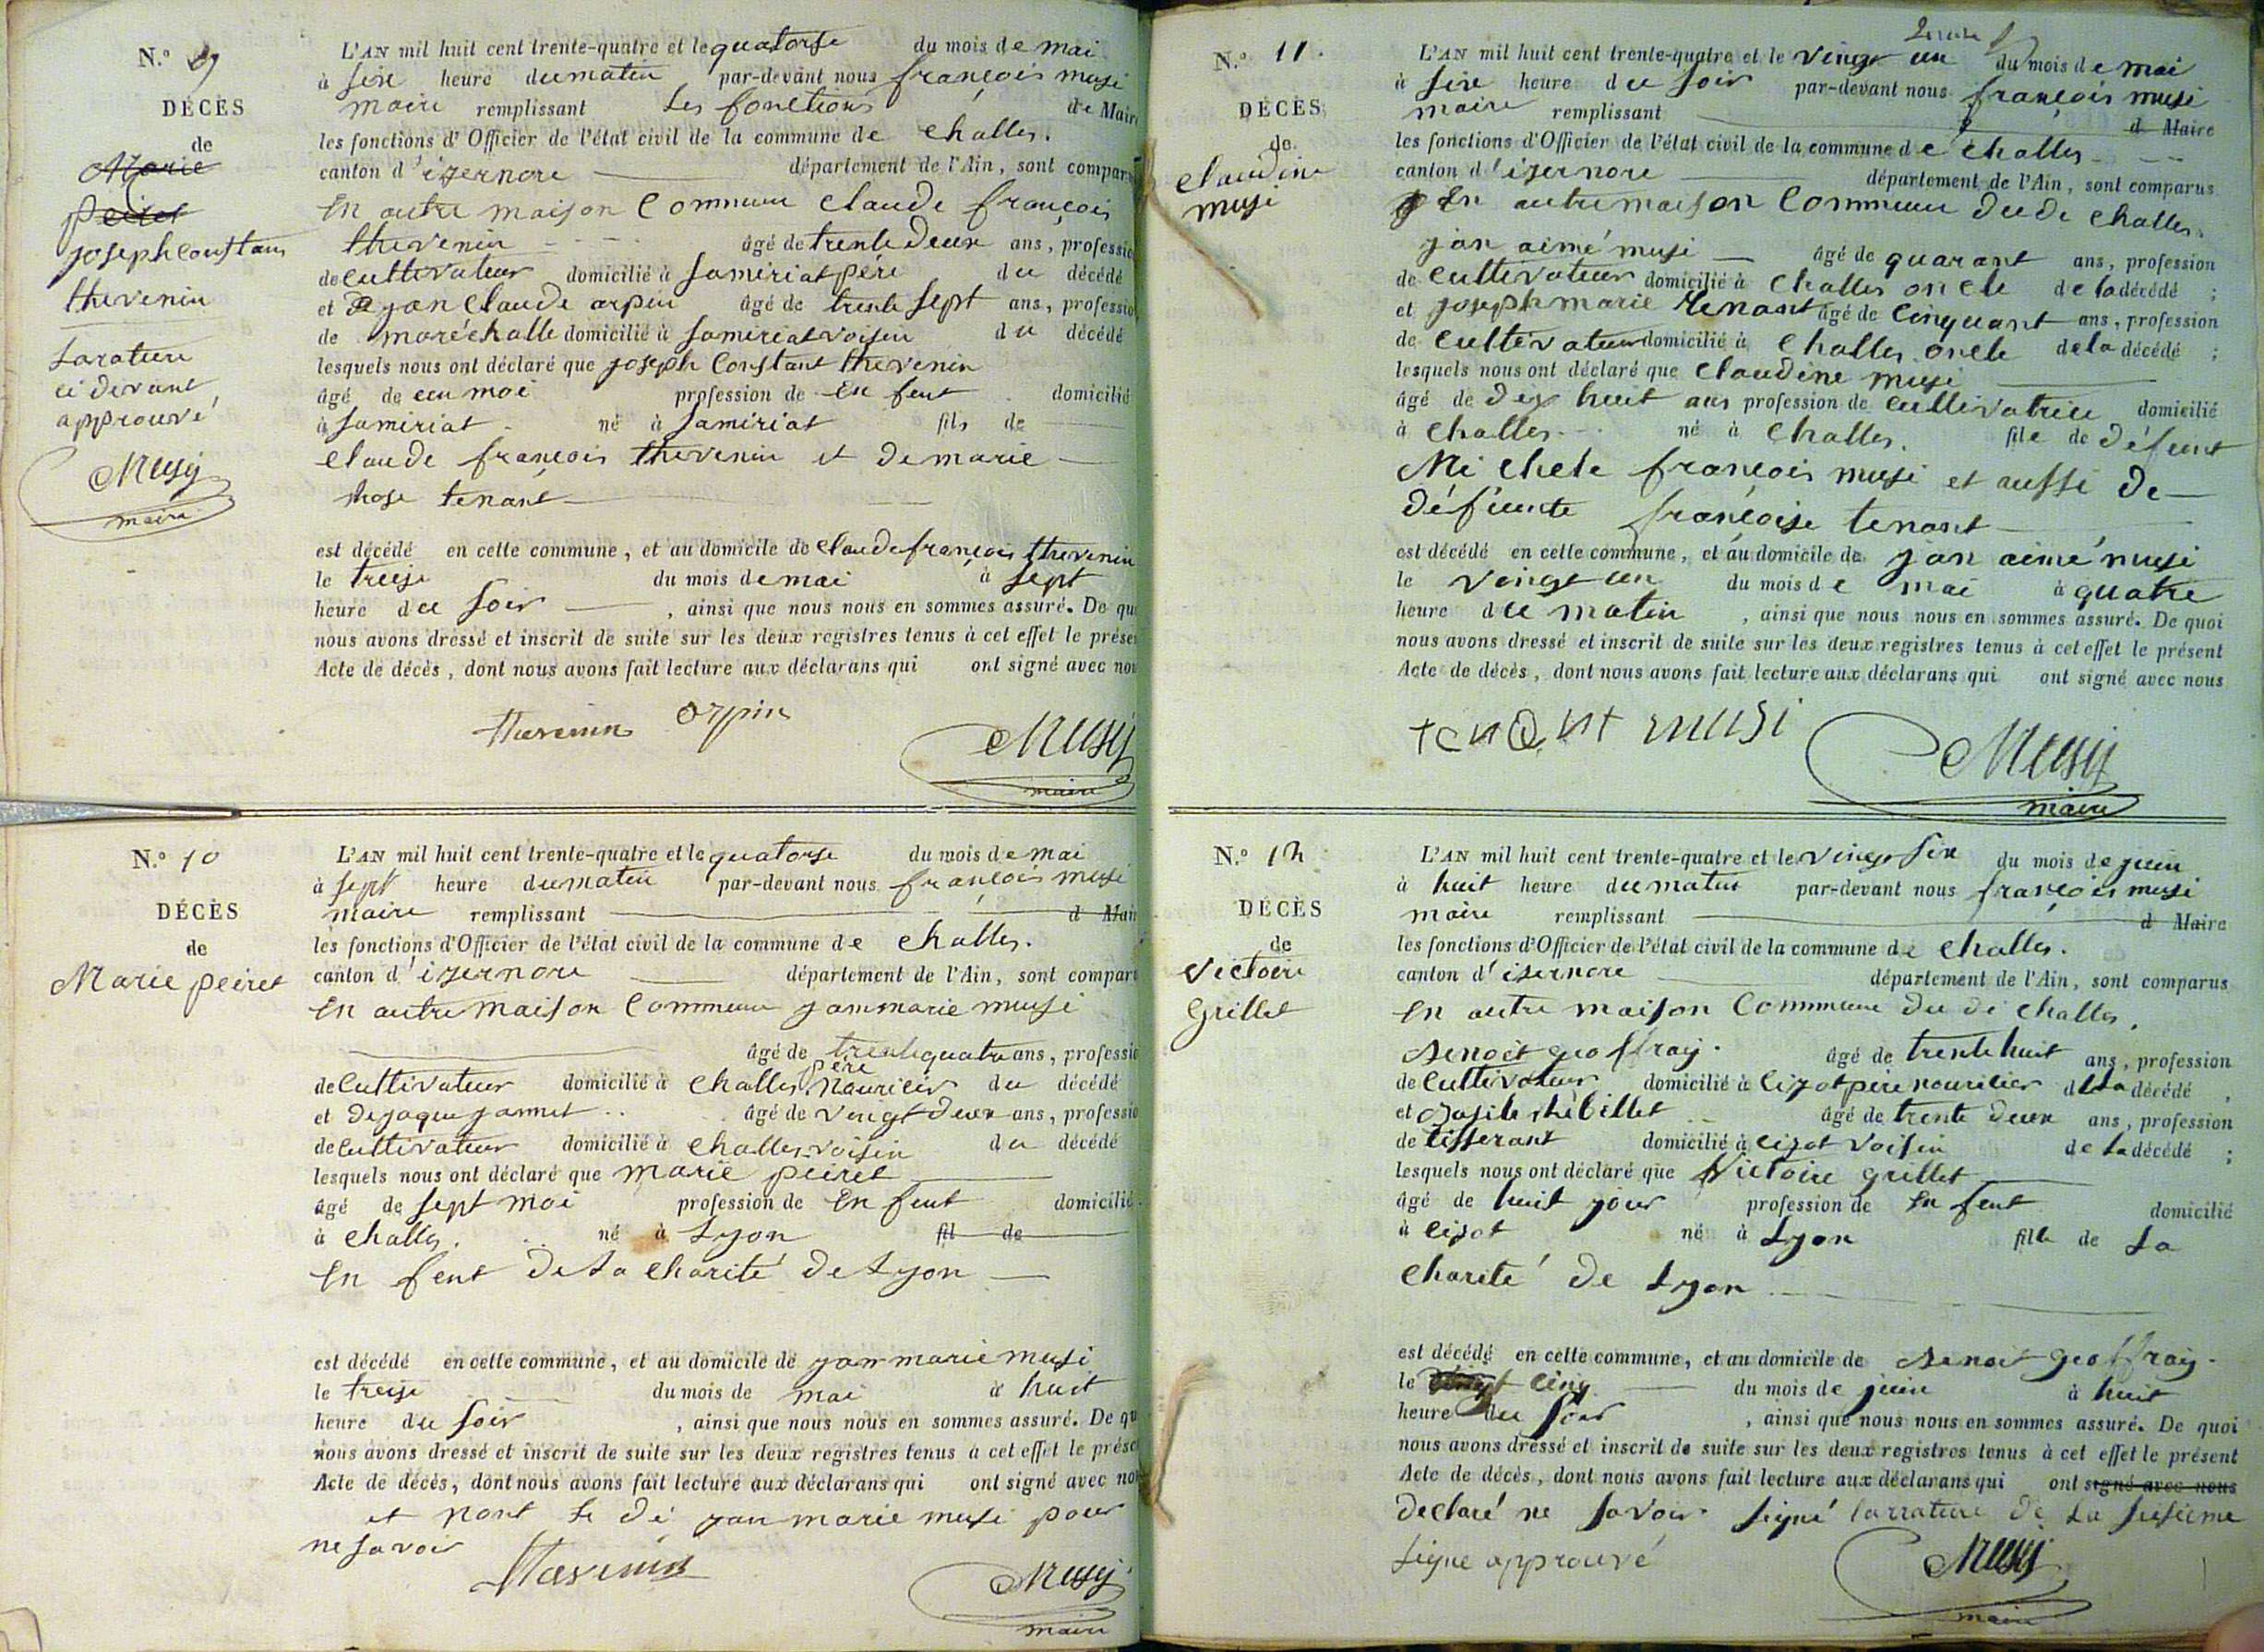 N.º 9
DÉCÈS
de
Marie
peiret
joseph constans
thevenin
Larature
ci devant
approuvé
Musy
maire
L'AN mil huit cent trente-quatre et le quatorse du mois de mai
à six heure du matin par-devant nous françois musi
maire remplissant Les fonctions de Maire
les fonctions d'Officier de l'état civil de la commune de challes.
canton d'izernore département de l'Ain, sont compar
En autre maison Commune Claude françois
thevenin âgé de trente deux ans, professio
de cultivateur domicilié à Samiriat père du décédé
et De jan Claude arpin âgé de trente sept ans, professio
de maréchalle domicilié à Samiriat voisin du décédé
lesquels nous ont déclaré que joseph Constant thevenin
âgé de eun moi profession de En fent domicilié
à Samiriat né à Samiriat fils de
Claude françois thevenin et de marie
rose tenant
est décédé en cette commune, et au domicile de Claude françois thevenin
le treise du mois de mai à sept
heure du soir, ainsi que nous nous en sommes assuré. De qu
nous avons dressé et inscrit de suite sur les deux registres tenus à cet effet le prése
Acte de décès, dont nous avons fait lecture aux déclarans qui ont signé avec nou
thevenin arpin Musy
maire
N.º 10
DÉCÈS
de
Marie peiret
L'AN mil huit cent trente-quatre et le quatorse du mois de mai
à sept heure du matin par-devant nous françois musi
maire remplissant d Mair
les fonctions d'Officier de l'état civil de la commune de challes.
canton d'izernore département de l'Ain, sont compar
En autre maison Commune jan marie musi
âgé de trente quatre ans, professio
père
de Cultivateur domicilié à Challes Nouricir du décédé
et De jaque jannet âgé de vingt deux ans, professio
de Cultivateur domicilié à Challes voisin du décédé
lesquels nous ont déclaré que marie peiret
âgé de sept moi profession de En fent domicilié
à challes. né à Lyon fil de
En fent De La charité de Lyon
est décédé en cette commune, et au domicile de jan marie musi
le treise du mois de mai à huit
heure du soir, ainsi que nous nous en sommes assuré. De qu
nous avons dressé et inscrit de suite sur les deux registres tenus à cet effet le prése
Acte de décès, dont nous avons fait lecture aux déclarans qui ont signé avec nou
et nont le di jan marie musi pour
ne savoir
thevenin Musy
maire
N.º 11.
DÉCÈS
de
Claudine
musi
L'AN mil huit cent trente-quatre et le vingt un du mois de mai
à six heure du soir par-devant nous françois musi
maire remplissant d Maire
les fonctions d'Officier de l'état civil de la commune de challes
canton d'izernore département de l'Ain, sont comparus
En autre maison Commune du di challes.
jan aimé musi âgé de quarant ans, profession
de cultivateur domicilié à Challes oncle de la décédé ;
et joseph marie tenant âgé de Cinquant ans, profession
de cultivateur domicilié à Challes oncle de la décédé ;
lesquels nous ont déclaré que Claudine musi
âgé de dix huit ans profession de cultivatrice domicilié
à challes né à challes. file de défeunt
Michele françois musi et aussi de
défeunte françoise tenant
est décédé en cette commune, et au domicile de jan aimé musi
le vingt un du mois de mai à quatre
heure du matin, ainsi que nous nous en sommes assuré. De quoi
nous avons dressé et inscrit de suite sur les deux registres tenus à cet effet le présent
Acte de décès, dont nous avons fait lecture aux déclarans qui ont signé avec nous
tenant musi Musy
maire
N.º 12
DÉCÈS
de
Victoire
Grillet
L'AN mil huit cent trente-quatre et le vingt six du mois de juin
à huit heure du matin par-devant nous françois musi
maire remplissant d Maire
les fonctions d'Officier de l'état civil de la commune de challes.
canton d'isernore département de l'Ain, sont comparus
En autre maison Commune du di challes.
Benoit geoffray. âgé de trente huit ans, profession
de cultivateur domicilié à Cizot père nouricier de la décédé ,
et Basile rhébillet âgé de trente deux ans, profession
de tisserant domicilié à Cizot voisin de la décédé ;
lesquels nous ont déclaré que Victoire grillet
âgé de huit jour profession de En fent domicilié
à Cizot né à Lyon fille de La
charité de Lyon
est décédé en cette commune, et au domicile de Benoit geoffray.
le vingt cinq du mois de juin à huit
heure du soir, ainsi que nous nous en sommes assuré. De quoi
nous avons dressé et inscrit de suite sur les deux registres tenus à cet effet le présent
Acte de décès, dont nous avons fait lecture aux déclarans qui ont signé avec nous
declaré ne savoir signé larrature de La sisième
Ligne approuvé
Musy
maire